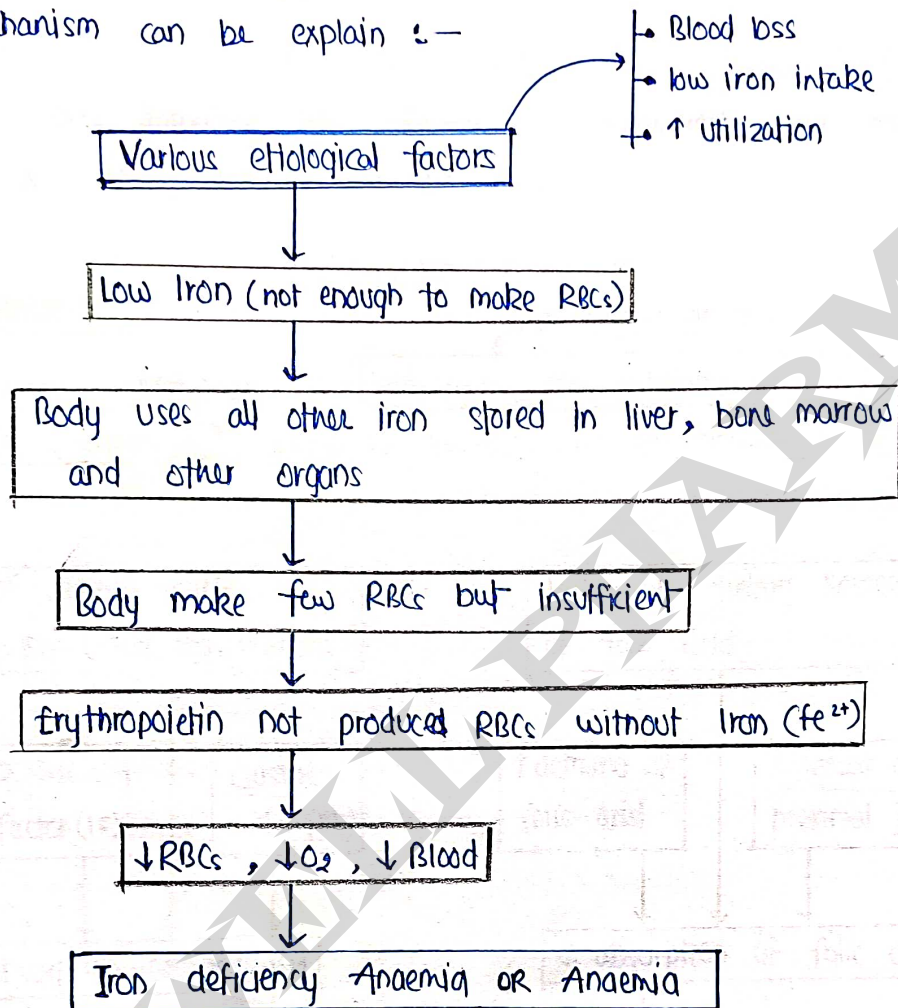 can be explain :-
Blood loss
low iron intake
↑ utilization
Various etiological factors
Low Iron (not enough to make RBCs)
Body uses all other iron stored in liver, bone marrow
and other organs
Body make few RBCs but insufficient
Erythropoietin not produced RBCs without Iron (fe²⁺)
↓RBCs , ↓O₂ , ↓ Blood
Iron deficiency Anaemia OR Anaemia
WELL PHARM